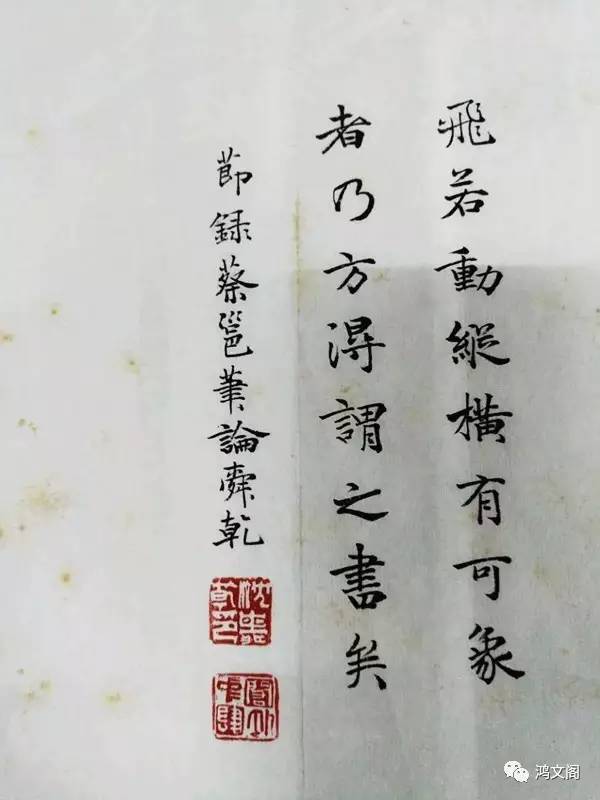 飛若動縱橫有可象
者乃方得謂之書矣
節録蔡邕筆論舜乾
鸿文阁